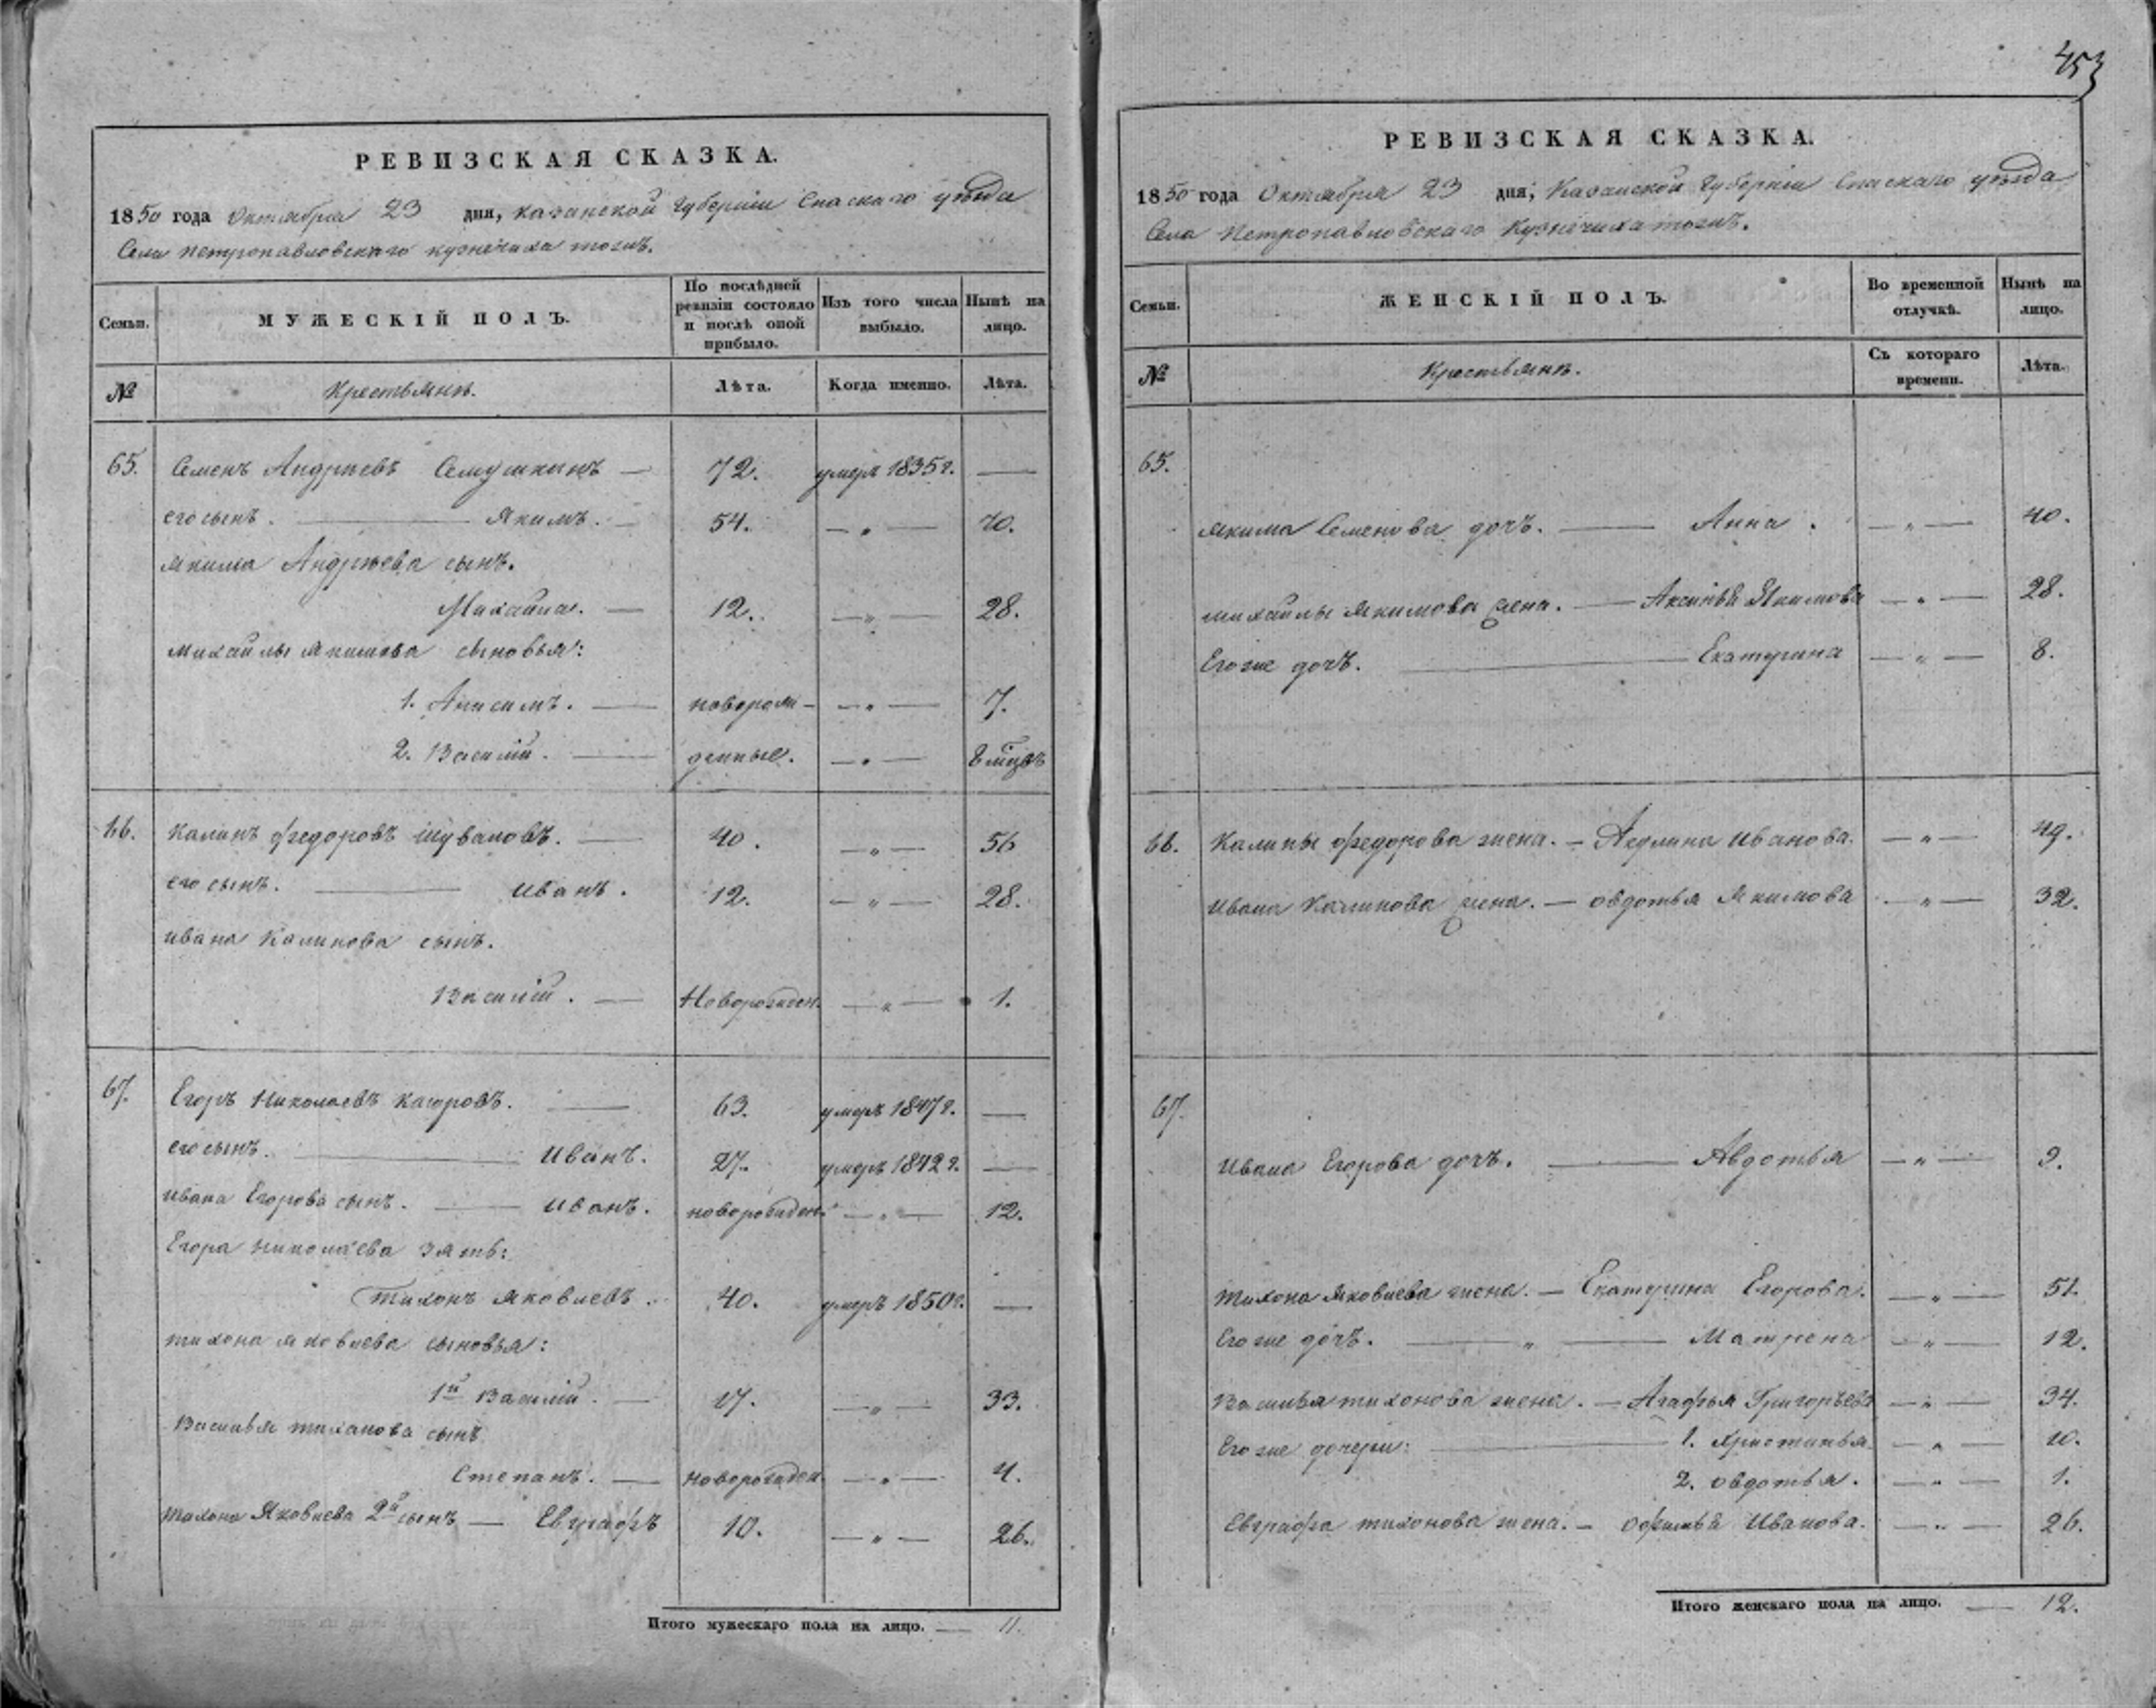 РЕВИЗСКАЯ СКАЗКА.
1850 года Октября 23 дня, Казанской Губернiи Спаскаго уѣзда
Села Петропавловскаго Кузнечиха тожъ.
Семьи.
МУЖЕСКІЙ ПОЛЪ.
По послѣдней ревизіи состояло и послѣ оной прибыло.
Изъ того числа выбыло.
Нынѣ на лицо.
№
Крестьянъ.
Лѣта.
Когда именно.
Лѣта.
65. Семенъ Андреевъ Семушкинъ — 72. умеръ 1835 г. —
его сынъ. — Якимъ. — 54. — „ — 70.
Якима Андрѣева сынъ.
Михаила. — 12. — „ — 28.
Михайлы Якимова сыновья:
1. Анисимъ. — новорож- — „ — 7.
2. Василій. — денные. — „ —
66. Калинъ Федоровъ Шуваловъ. — 40. — „ — 56
его сынъ. — Иванъ. 12. — „ — 28.
Ивана Калинова сынъ.
Василій. — Новорожден. — „ — 1.
67. Егоръ Николаевъ — 63. умеръ 1847 г. —
его сынъ. — Иванъ. 27. умеръ 1842 г. —
Ивана Егорова сынъ. — Иванъ. новорожден. — „ — 12.
Егора Николаева зять:
Тихонъ Яковлевъ. 40. умеръ 1850 г. —
Тихона Яковлева сыновья:
1й Василій. — 17. — „ — 33.
Василья Тихонова сынъ
Степанъ. — новорожден. — „ — 4.
Тихона Яковлева 2й сынъ — Евграфъ 10. — „ — 26.
Итого мужескаго пола на лицо. — 11.
453
РЕВИЗСКАЯ СКАЗКА.
1850 года Октября 23 дня, Казанской Губернiи Спаскаго уѣзда
Села Петропавловскаго Кузнечиха тожъ.
Семьи.
ЖЕНСКІЙ ПОЛЪ.
Во временной отлучкѣ.
Нынѣ на лицо.
№
Крестьянъ.
Съ котораго времени.
Лѣта.
65.
Якима Семенова дочь. — Анна. — „ — 40.
Михайлы Якимова жена. — Аксинья Якимова — „ — 28.
Его же дочь. — Екатерина — „ — 8.
66. Калины Федорова жена. — Иванова. — „ — 49.
Ивана Калинова жена. — Овдотья Якимова — „ — 32.
67.
Ивана Егорова дочь. — Авдотья — „ — 9.
Тихона Яковлева жена. — Екатерина Егорова. — „ — 51.
Его же дочь. — „ — Матрена — „ — 12.
Василья Тихонова жена. — Агафья Григорьева — „ — 34.
Его же дочери: — 1. Христинья. — „ — 10.
2. Овдотья. — „ — 1.
Евграфа Тихонова жена. — Офимья Иванова. — „ — 26.
Итого женскаго пола на лицо. — 12.